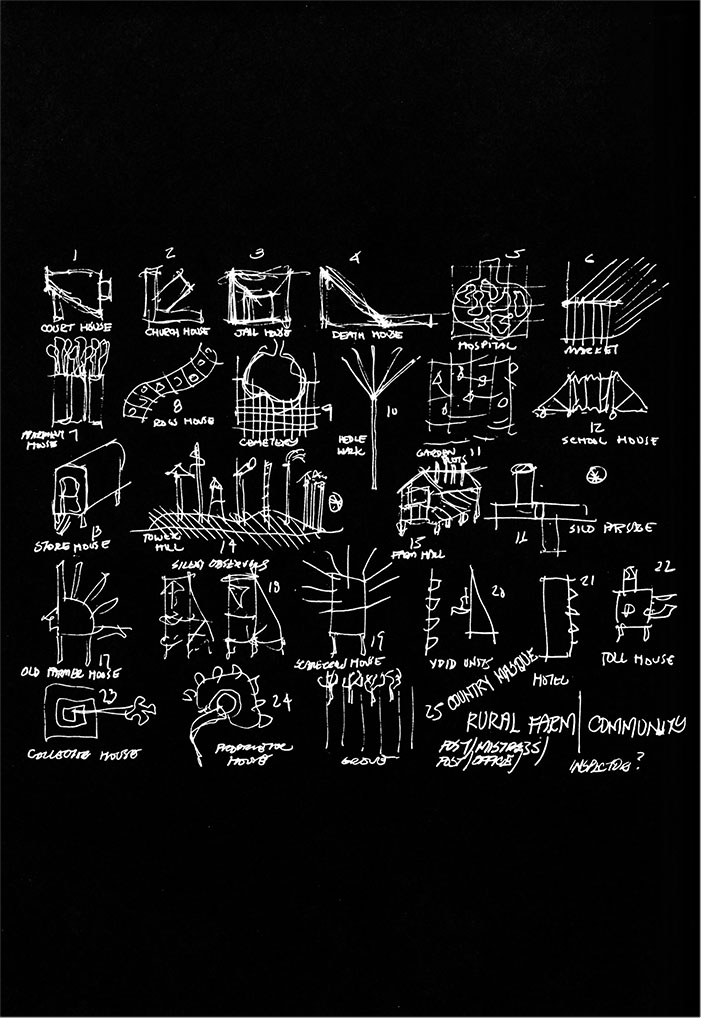 1 2 3 4 5 6
COURT HOUSE
CHURCH HOUSE
JAIL HOUSE
DEATH HOUSE
HOSPITAL
MARKET
7
HOUSE
8
ROW HOUSE
9
CEMETERY
10
WALK
11
GARDEN
PLOTS
12
SCHOOL HOUSE
13
STORE HOUSE
TOWER
HILL
14
15
FARM
SILO BRIDGE
17
OLD FARMER HOUSE
18
SILENT OBSERVERS
19
SCARECROW HOUSE
20
VOID UNITS
21
HOTEL
22
TOLL HOUSE
23
COLLECTIVE HOUSE
24
HOUSE
25
COUNTRY MASQUE
RURAL FARM COMMUNITY
POST/MISTRESS/
POST/OFFICE/
INSPECTOR?